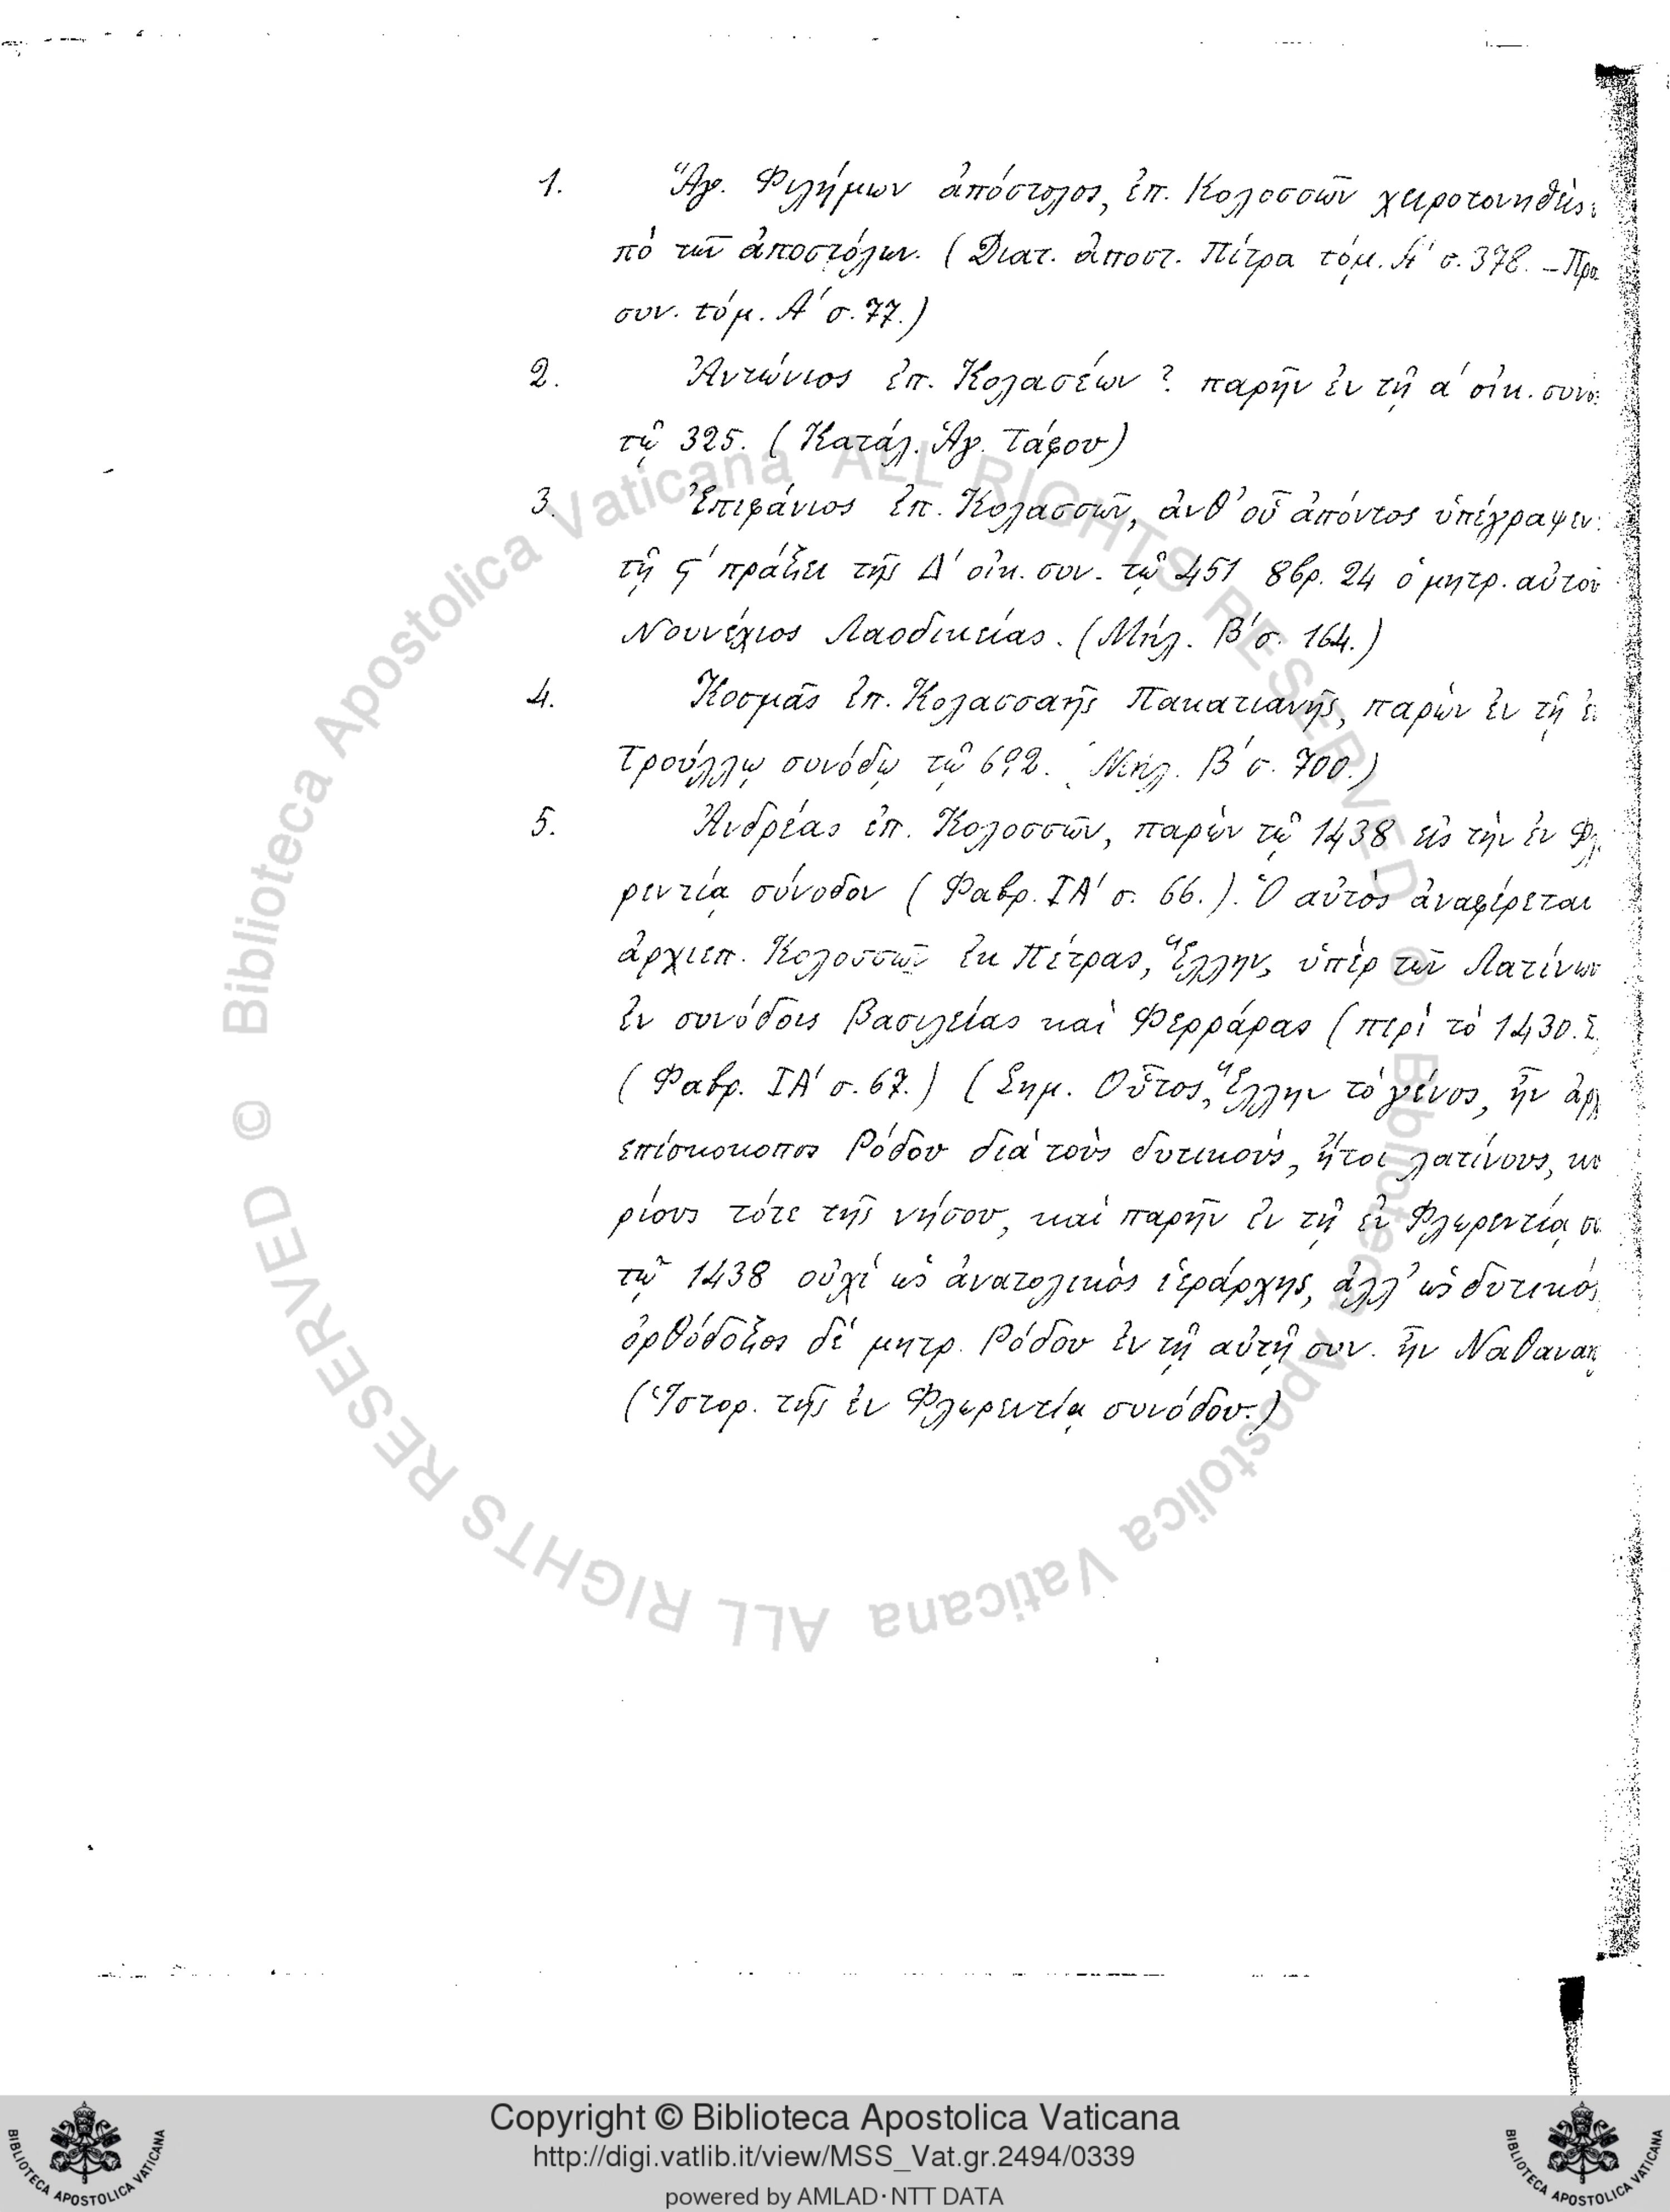 1. Ἅγ. Φιλήμων ἀπόστολος, ἐπ. Κολοσσῶν χειροτονηθεὶς
πὸ τῶν ἀποστόλων. (Διατ. ἀποστ. Πίτρα τόμ. Α' σ. 378. – Προ
συν. τόμ. Α' σ. 77.)
2. Ἀντώνιος ἐπ. Κολασέων ? παρῆν ἐν τῇ α' οἰκ. συνό
τῷ 325. (Κατάλ. Ἁγ. Τάφου)
3. Ἐπιφάνιος ἐπ. Κολασσῶν, ἀνθ' οὗ ἀπόντος ὑπέγραψεν
τῇ ϛ' πράξει τῆς Δ' οἰκ. συν. τῷ 451 8βρ. 24 ὁ μητρ. αὐτοῦ
Νουνέχιος Λαοδικείας. (Μήλ. Β' σ. 164.)
4. Κοσμᾶς ἐπ. Κολασσαῆς Πακατιανῆς, παρὼν ἐν τῇ ἐ
Τρούλλῳ συνόδῳ τῷ 692. Μήλ. Β' σ. 700.)
5. Ἀνδρέας ἐπ. Κολοσσῶν, παρὼν τῷ 1438 εἰς τὴν ἐν Φλ
ρεντίᾳ σύνοδον (Φαβρ. ΙΑ' σ. 66.). Ὁ αὐτὸς ἀναφέρεται
ἀρχιεπ. Κολοσσῶν ἐκ Πέτρας, Ἕλλην, ὑπὲρ τῶν Λατίνων
ἐν συνόδοις Βασιλείας καὶ Φερράρας (περὶ τὸ 1430.
(Φαβρ. ΙΑ' σ. 67.) (Σημ. Οὗτος, Ἕλλην τὸ γένος, ἦν ἀρχ
επίσκοκοπος Ρόδου διὰ τοὺς δυτικοὺς, ἤτοι λατίνους, κυ
ρίους τότε τῆς νήσου, καὶ παρῆν ἐν τῇ ἐν Φλωρεντίᾳ σ
τῷ 1438 οὐχὶ ὡς ἀνατολικὸς ἱεράρχης, ἀλλ' ὡς δυτικὸς
ὀρθόδοξος δὲ μητρ. Ρόδου ἐν τῇ αὐτῇ συν. ἦν Ναθαναὴ
(Ἱστορ. τῆς ἐν Φλωρεντίᾳ συνόδου.)
© Biblioteca Apostolica Vaticana ALL RIGHTS RESERVED
© Biblioteca Apostolica Vaticana ALL RIGHTS RESERVED
Copyright © Biblioteca Apostolica Vaticana
http://digi.vatlib.it/view/MSS_Vat.gr.2494/0339
powered by AMLAD·NTT DATA
BIBLIOTECA APOSTOLICA VATICANA
BIBLIOTECA APOSTOLICA VATICANA